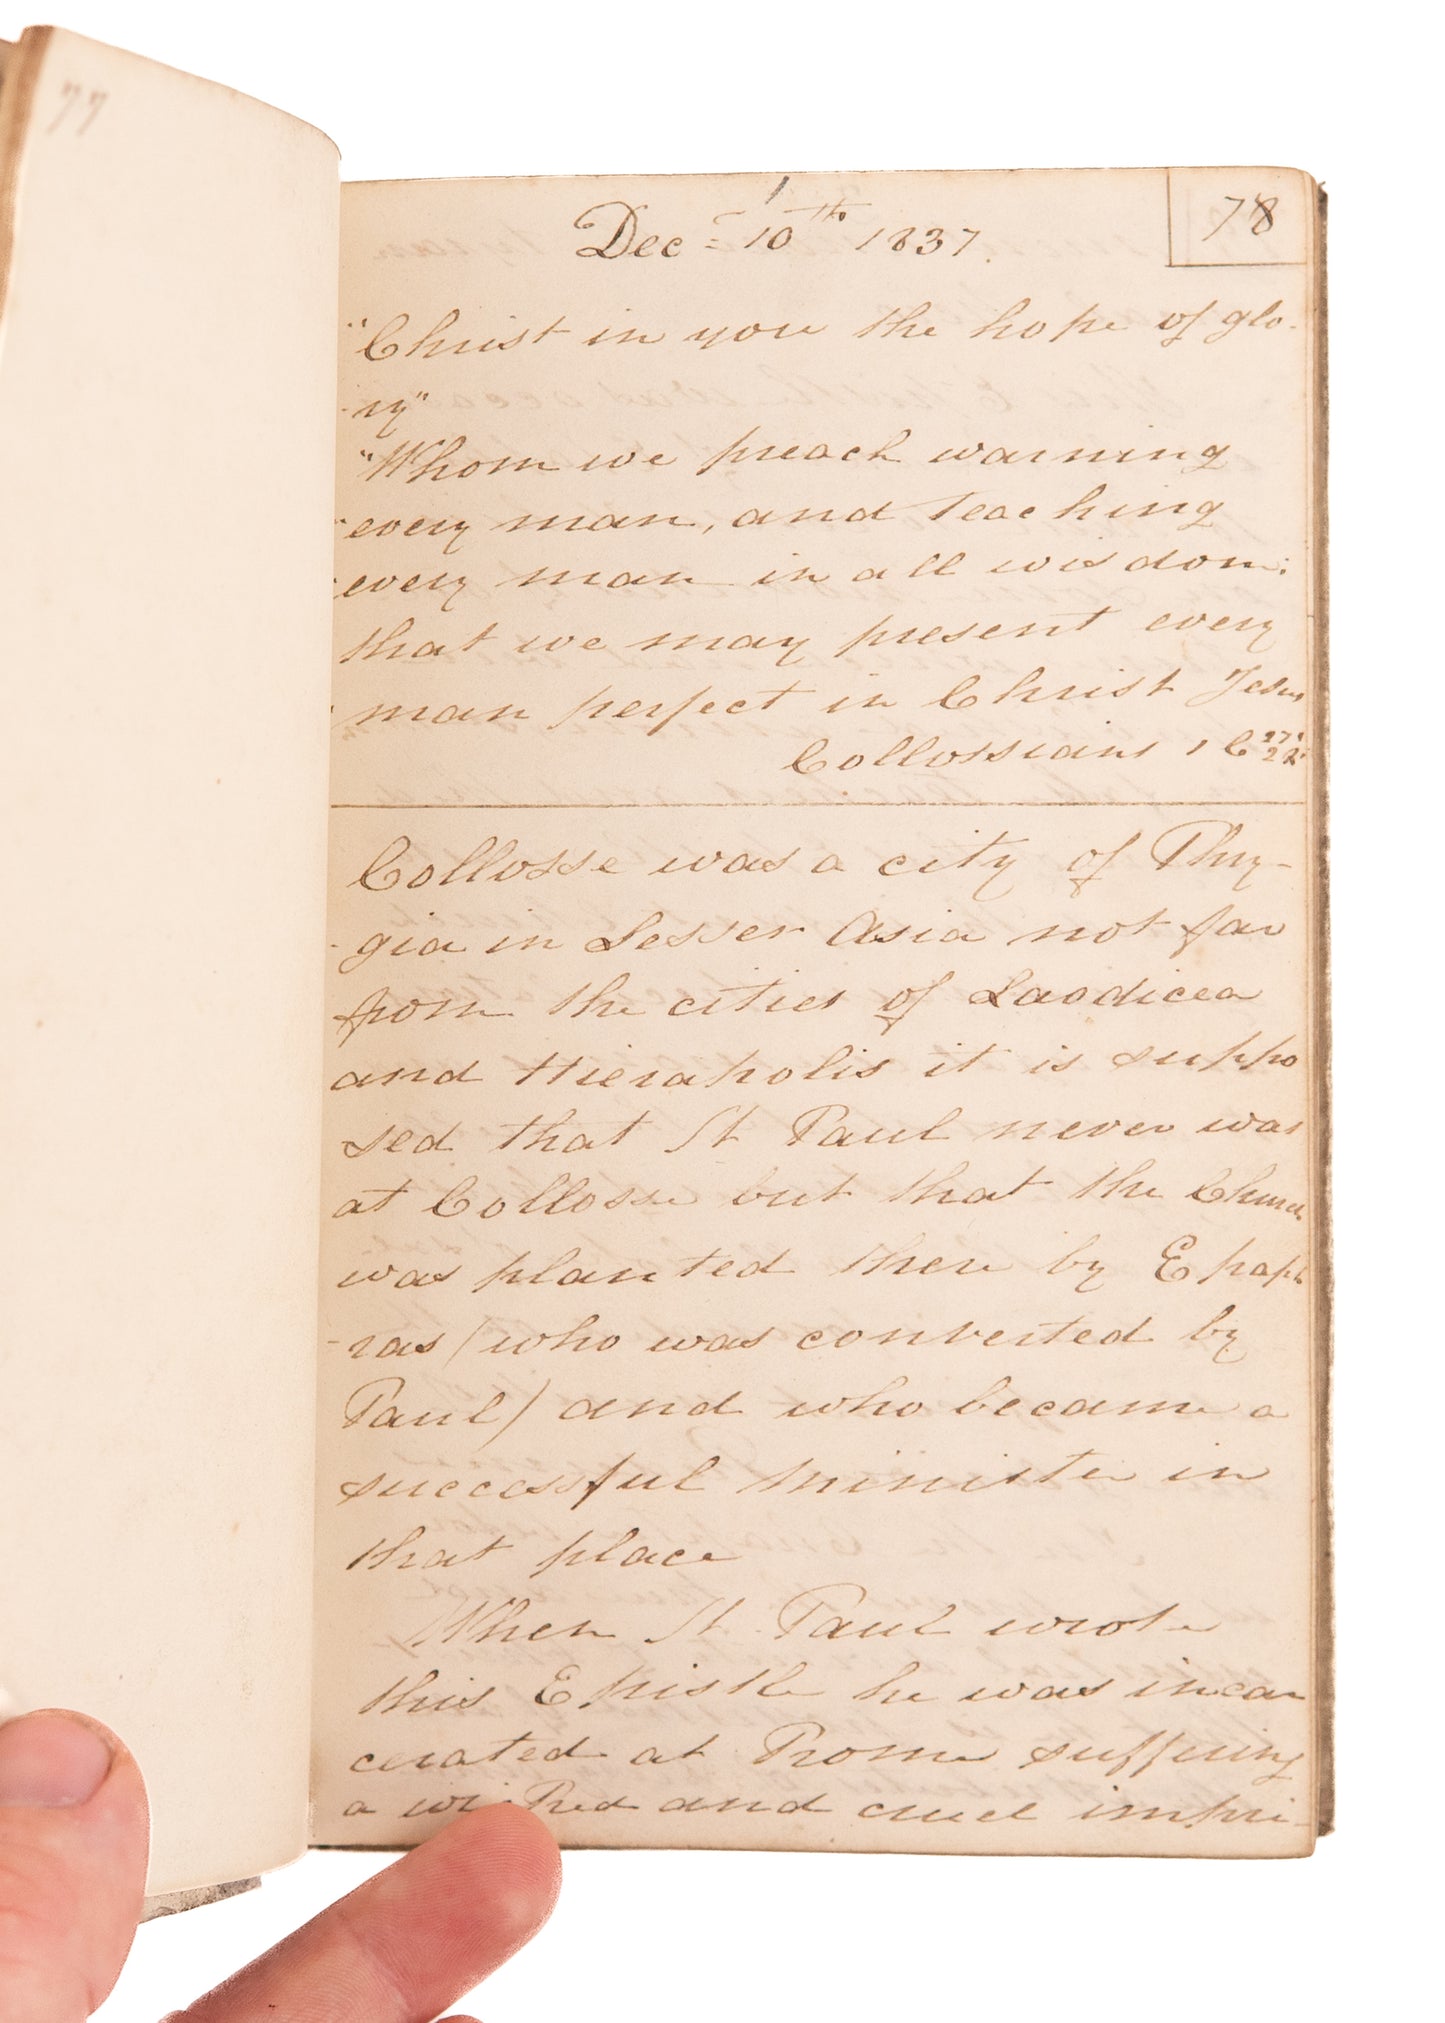 77
78
Dec = 10th 1837.
"Christ in you the hope of glo-
-ry"
"Whom we preach warning
every man, and teaching
every man in all wisdom:
that we may present every
man perfect in Christ Jesus
Collossians 1 C 27
Collosse was a city of Phry-
-gia in Lesser Asia not far
from the cities of Laodicea
and Hierapolis it is suppo
sed that St Paul never was
at Collosse but that the Church
was planted there by Epaph
-ras (who was converted by
Paul) and who became a
successful minister in
that place
When St. Paul wrote
this Epistle he was incar
cerated at Rome suffering
a wicked and cruel impri-